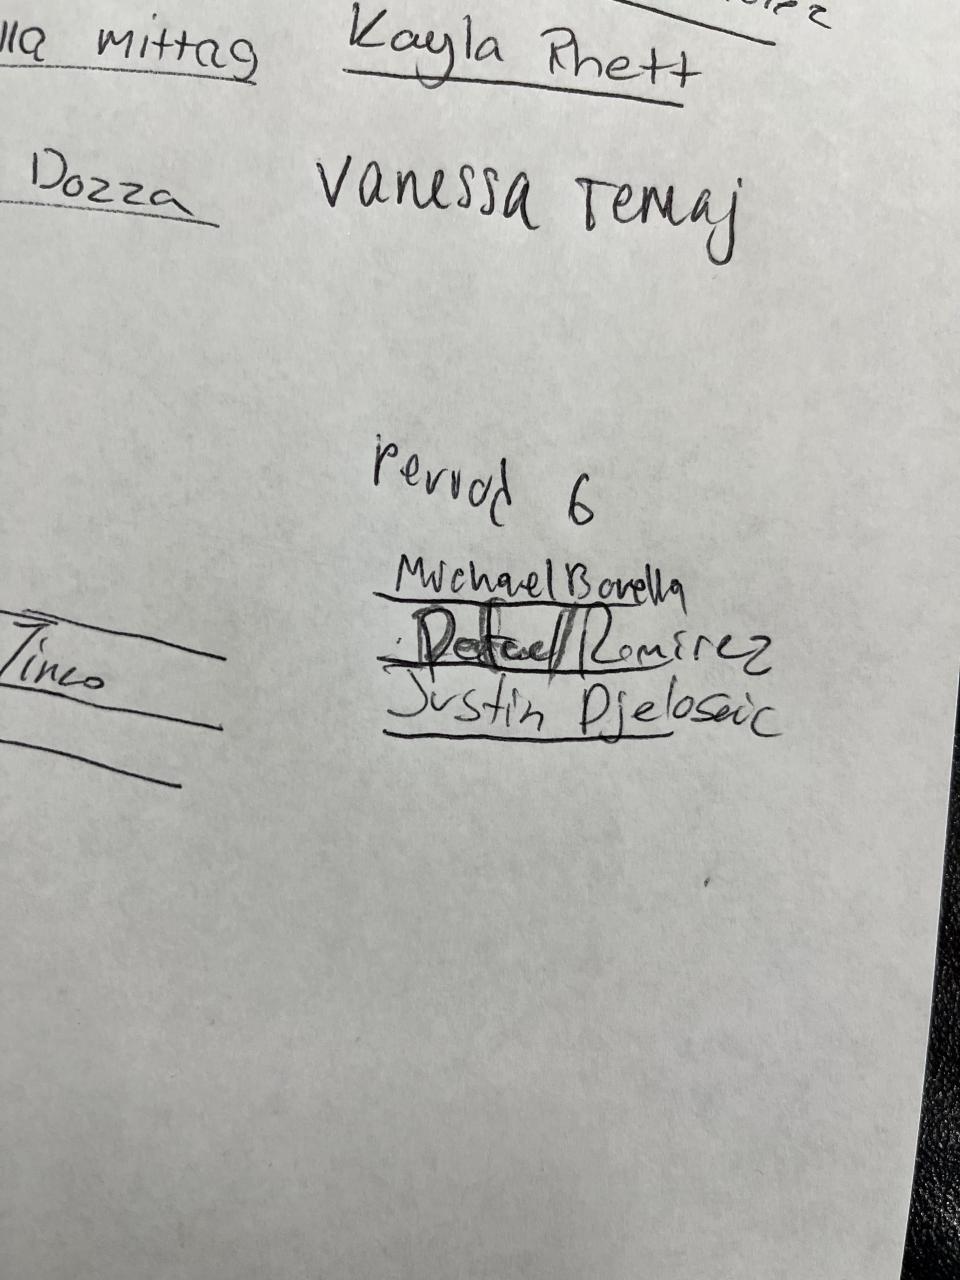 lla mittag Kayla Rhett
Dozza Vanessa Temaj
Period 6
Michael Borella
Rafael Ramirez
Tineo
Justin Djelosevic